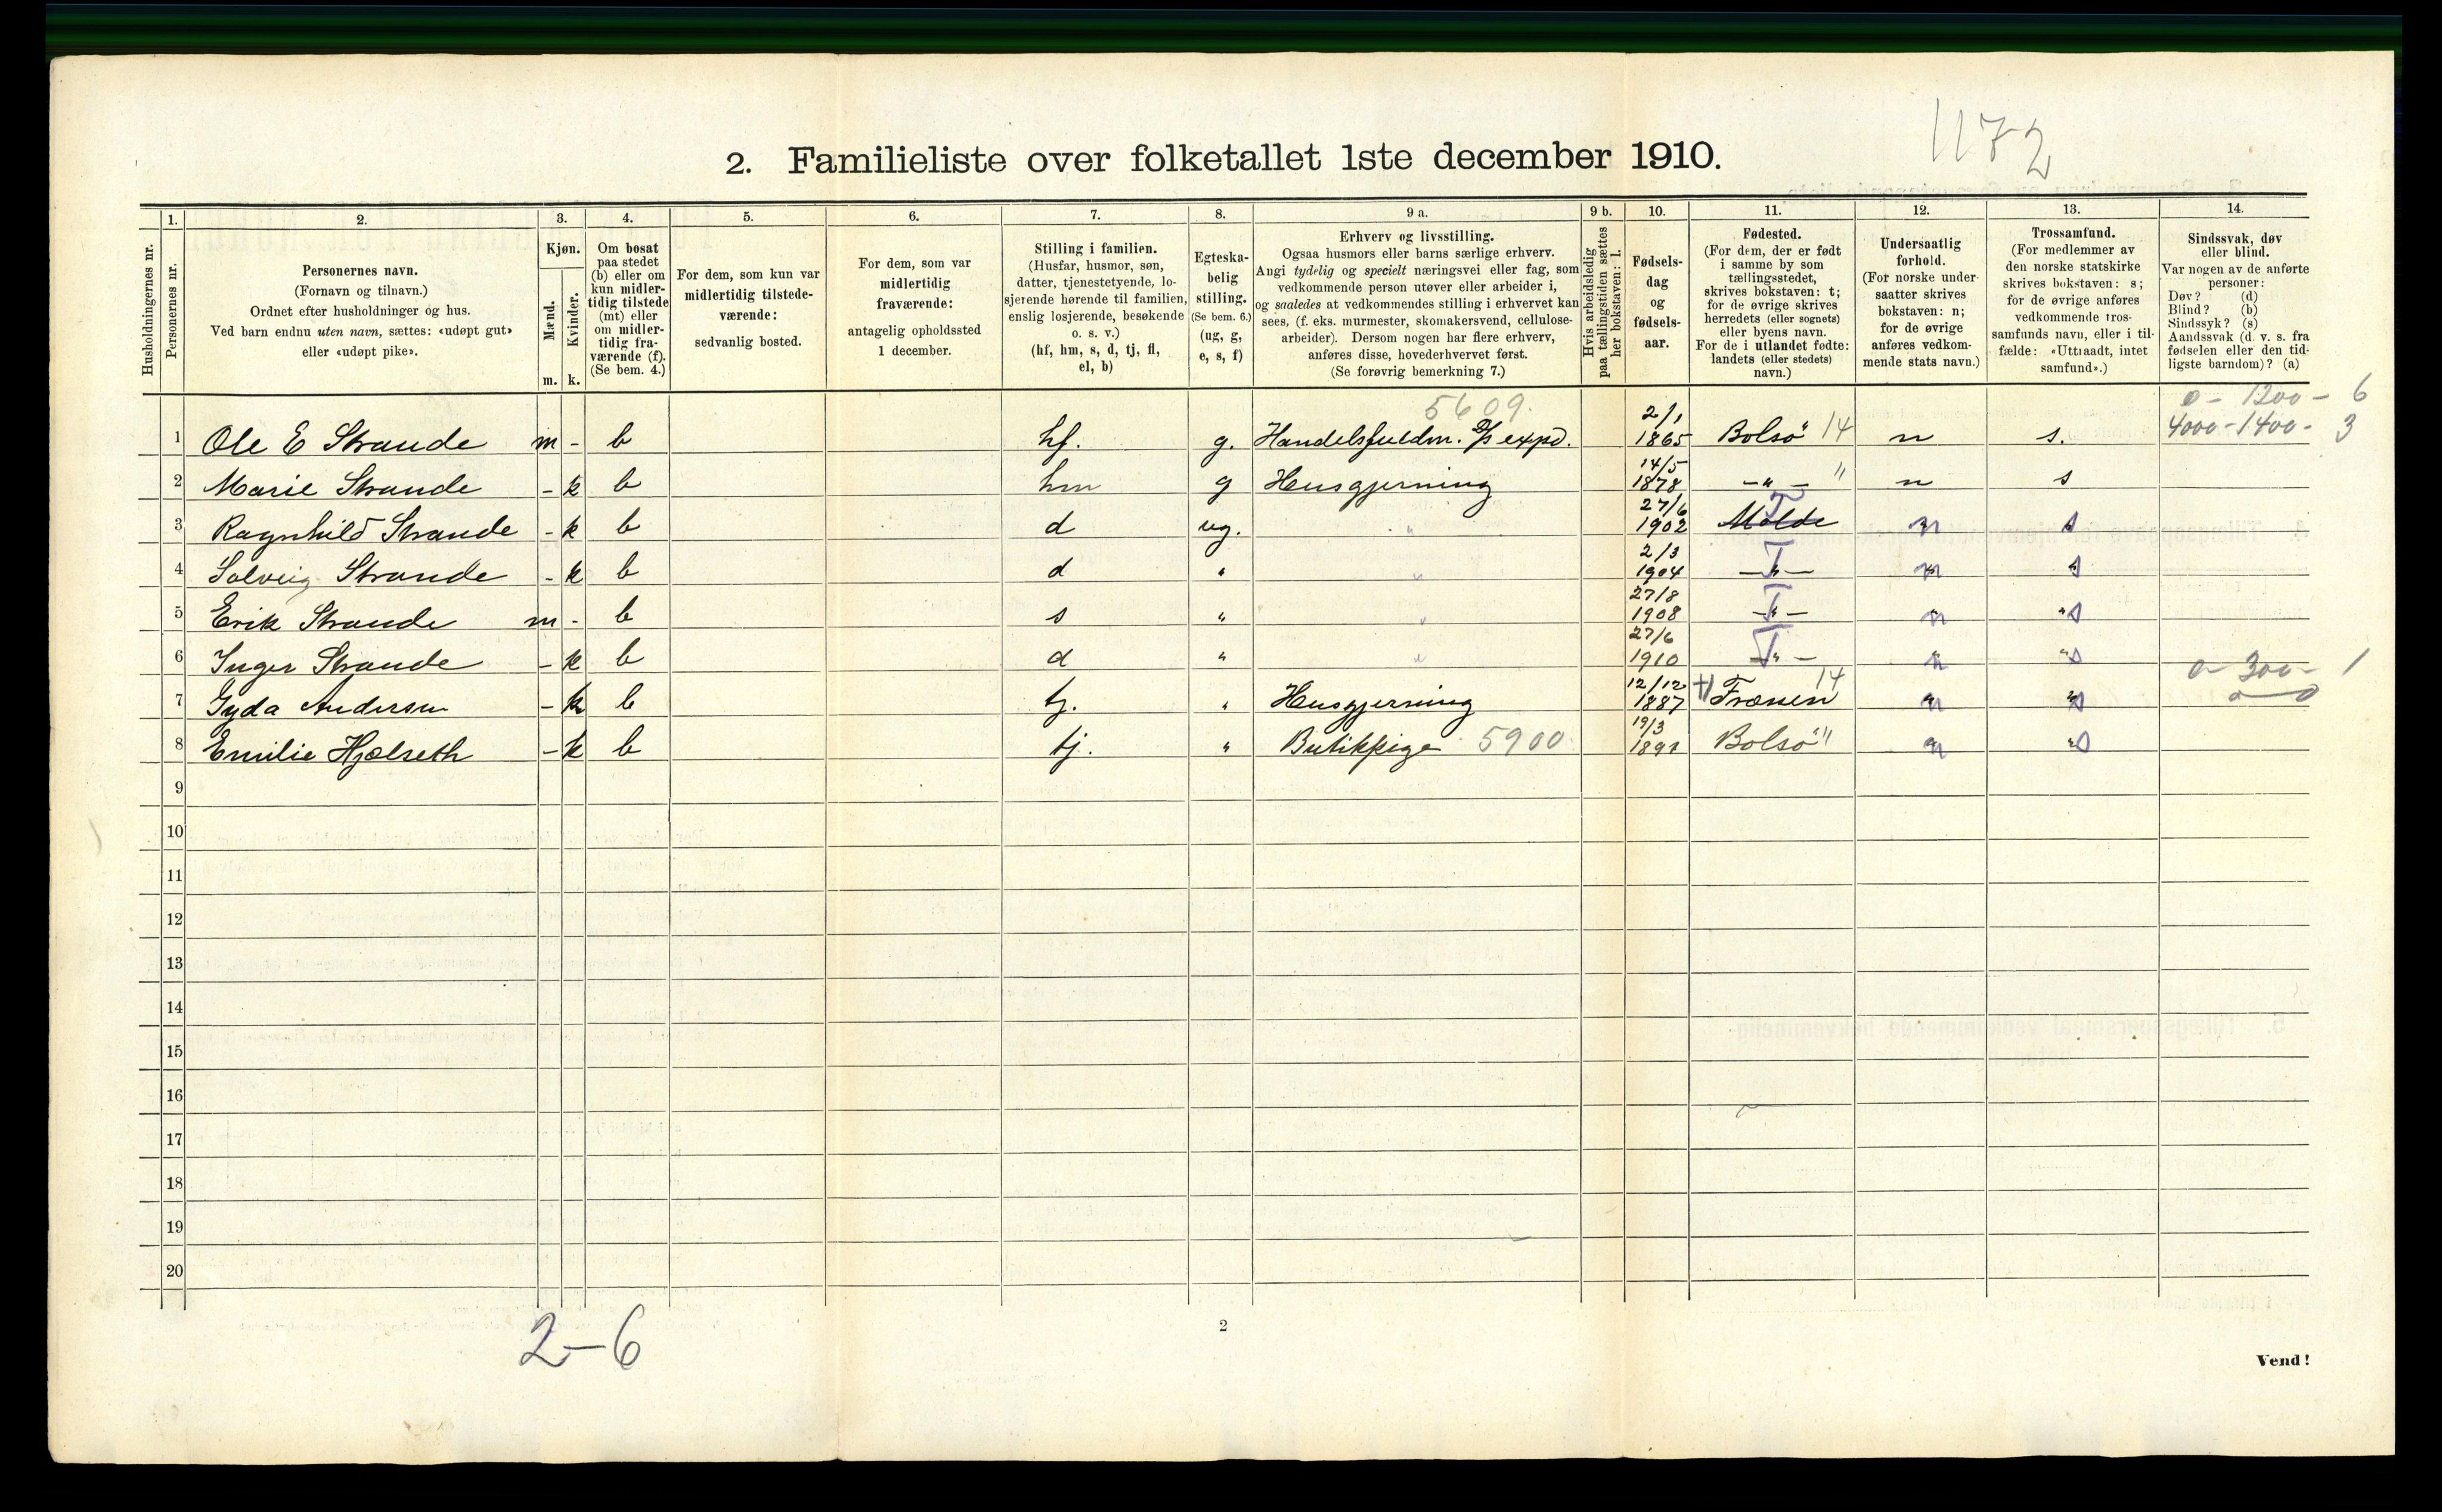 1172
2. Familieliste over folketallet 1ste december 1910.
1. 2. 3. 4. 5. 6. 7. 8. 9 a. 9 b. 10. 11. 12. 13. 14.
Husholdningernes nr.
Personernes nr.
Personernes navn.
(Fornavn og tilnavn.)
Ordnet efter husholdninger og hus.
Ved barn endnu uten navn, sættes: «udøpt gut»
eller «udøpt pike».
Kjøn.
Mænd.
Kvinder.
m. k.
Om bosat
paa stedet
(b) eller om
kun midler-
tidig tilstede
(mt) eller
om midler-
tidig fra-
værende (f).
(Se bem. 4.)
For dem, som kun var
midlertidig tilstede-
værende:
sedvanlig bosted.
For dem, som var
midlertidig
fraværende:
antagelig opholdssted
1 december.
Stilling i familien.
(Husfar, husmor, søn,
datter, tjenestetyende, lo-
sjerende hørende til familien,
enslig losjerende, besøkende
o. s. v.)
(hf, hm, s, d, tj, fl,
el, b)
Egteska-
belig
stilling.
(Se bem. 6.)
(ug, g,
e, s, f)
Erhverv og livsstilling.
Ogsaa husmors eller barns særlige erhverv.
Angi tydelig og specielt næringsvei eller fag, som
vedkommende person utøver eller arbeider i,
og saaledes at vedkommendes stilling i erhvervet kan
sees, (f. eks. murmester, skomakersvend, cellulose-
arbeider). Dersom nogen har flere erhverv,
anføres disse, hovederhvervet først.
(Se forøvrig bemerkning 7.)
Hvis arbeidsledig
paa tællingstiden sættes
her bokstaven: l.
Fødsels-
dag
og
fødsels-
aar.
Fødested.
(For dem, der er født
i samme by som
tællingsstedet,
skrives bokstaven: t;
for de øvrige skrives
herredets (eller sognets)
eller byens navn.
For de i utlandet fødte:
landets (eller stedets)
navn.)
Undersaatlig
forhold.
(For norske under-
saatter skrives
bokstaven: n;
for de øvrige
anføres vedkom-
mende stats navn.)
Trossamfund.
(For medlemmer av
den norske statskirke
skrives bokstaven: s;
for de øvrige anføres
vedkommende tros-
samfunds navn, eller i til-
fælde: «Uttraadt, intet
samfund».)
Sindssvak, døv
eller blind.
Var nogen av de anførte
personer:
Døv? (d)
Blind? (b)
Sindssyk? (s)
Aandssvak (d. v. s. fra
fødselen eller den tid-
ligste barndom)? (a)
5609. 0 - 1200 - 6
1 Ole E Strande m - b hf. g. Handelsfuldm. D/S expd. 2/1 1865 Bolsö 14 n s. 4000 - 1400 - 3
2 Marie Strande - k b hm g Husgjerning 14/5 1878 - " - " n s
3 Ragnhild Strande - k b d ug. " 27/6 1902 Molde T n s
4 Solveig Strande - k b d " " 2/3 1904 - " - T n s
5 Erik Strande m - b s " " 27/8 1908 - " - T n s
6 Inger Strande - k b d " " 27/6 1910 - " - T n s
0 - 300 - 1
7 Gyda Andersen - k b tj. " Husgjerning 12/12 1887 Frænen 14 n s 0 - 0
8 Emilie Hjelseth - k b tj. " Butikkpige 5900 19/3 1891 Bolsö " n s
9
10
11
12
13
14
15
16
17
18
19
20
2-6
2
Vend!